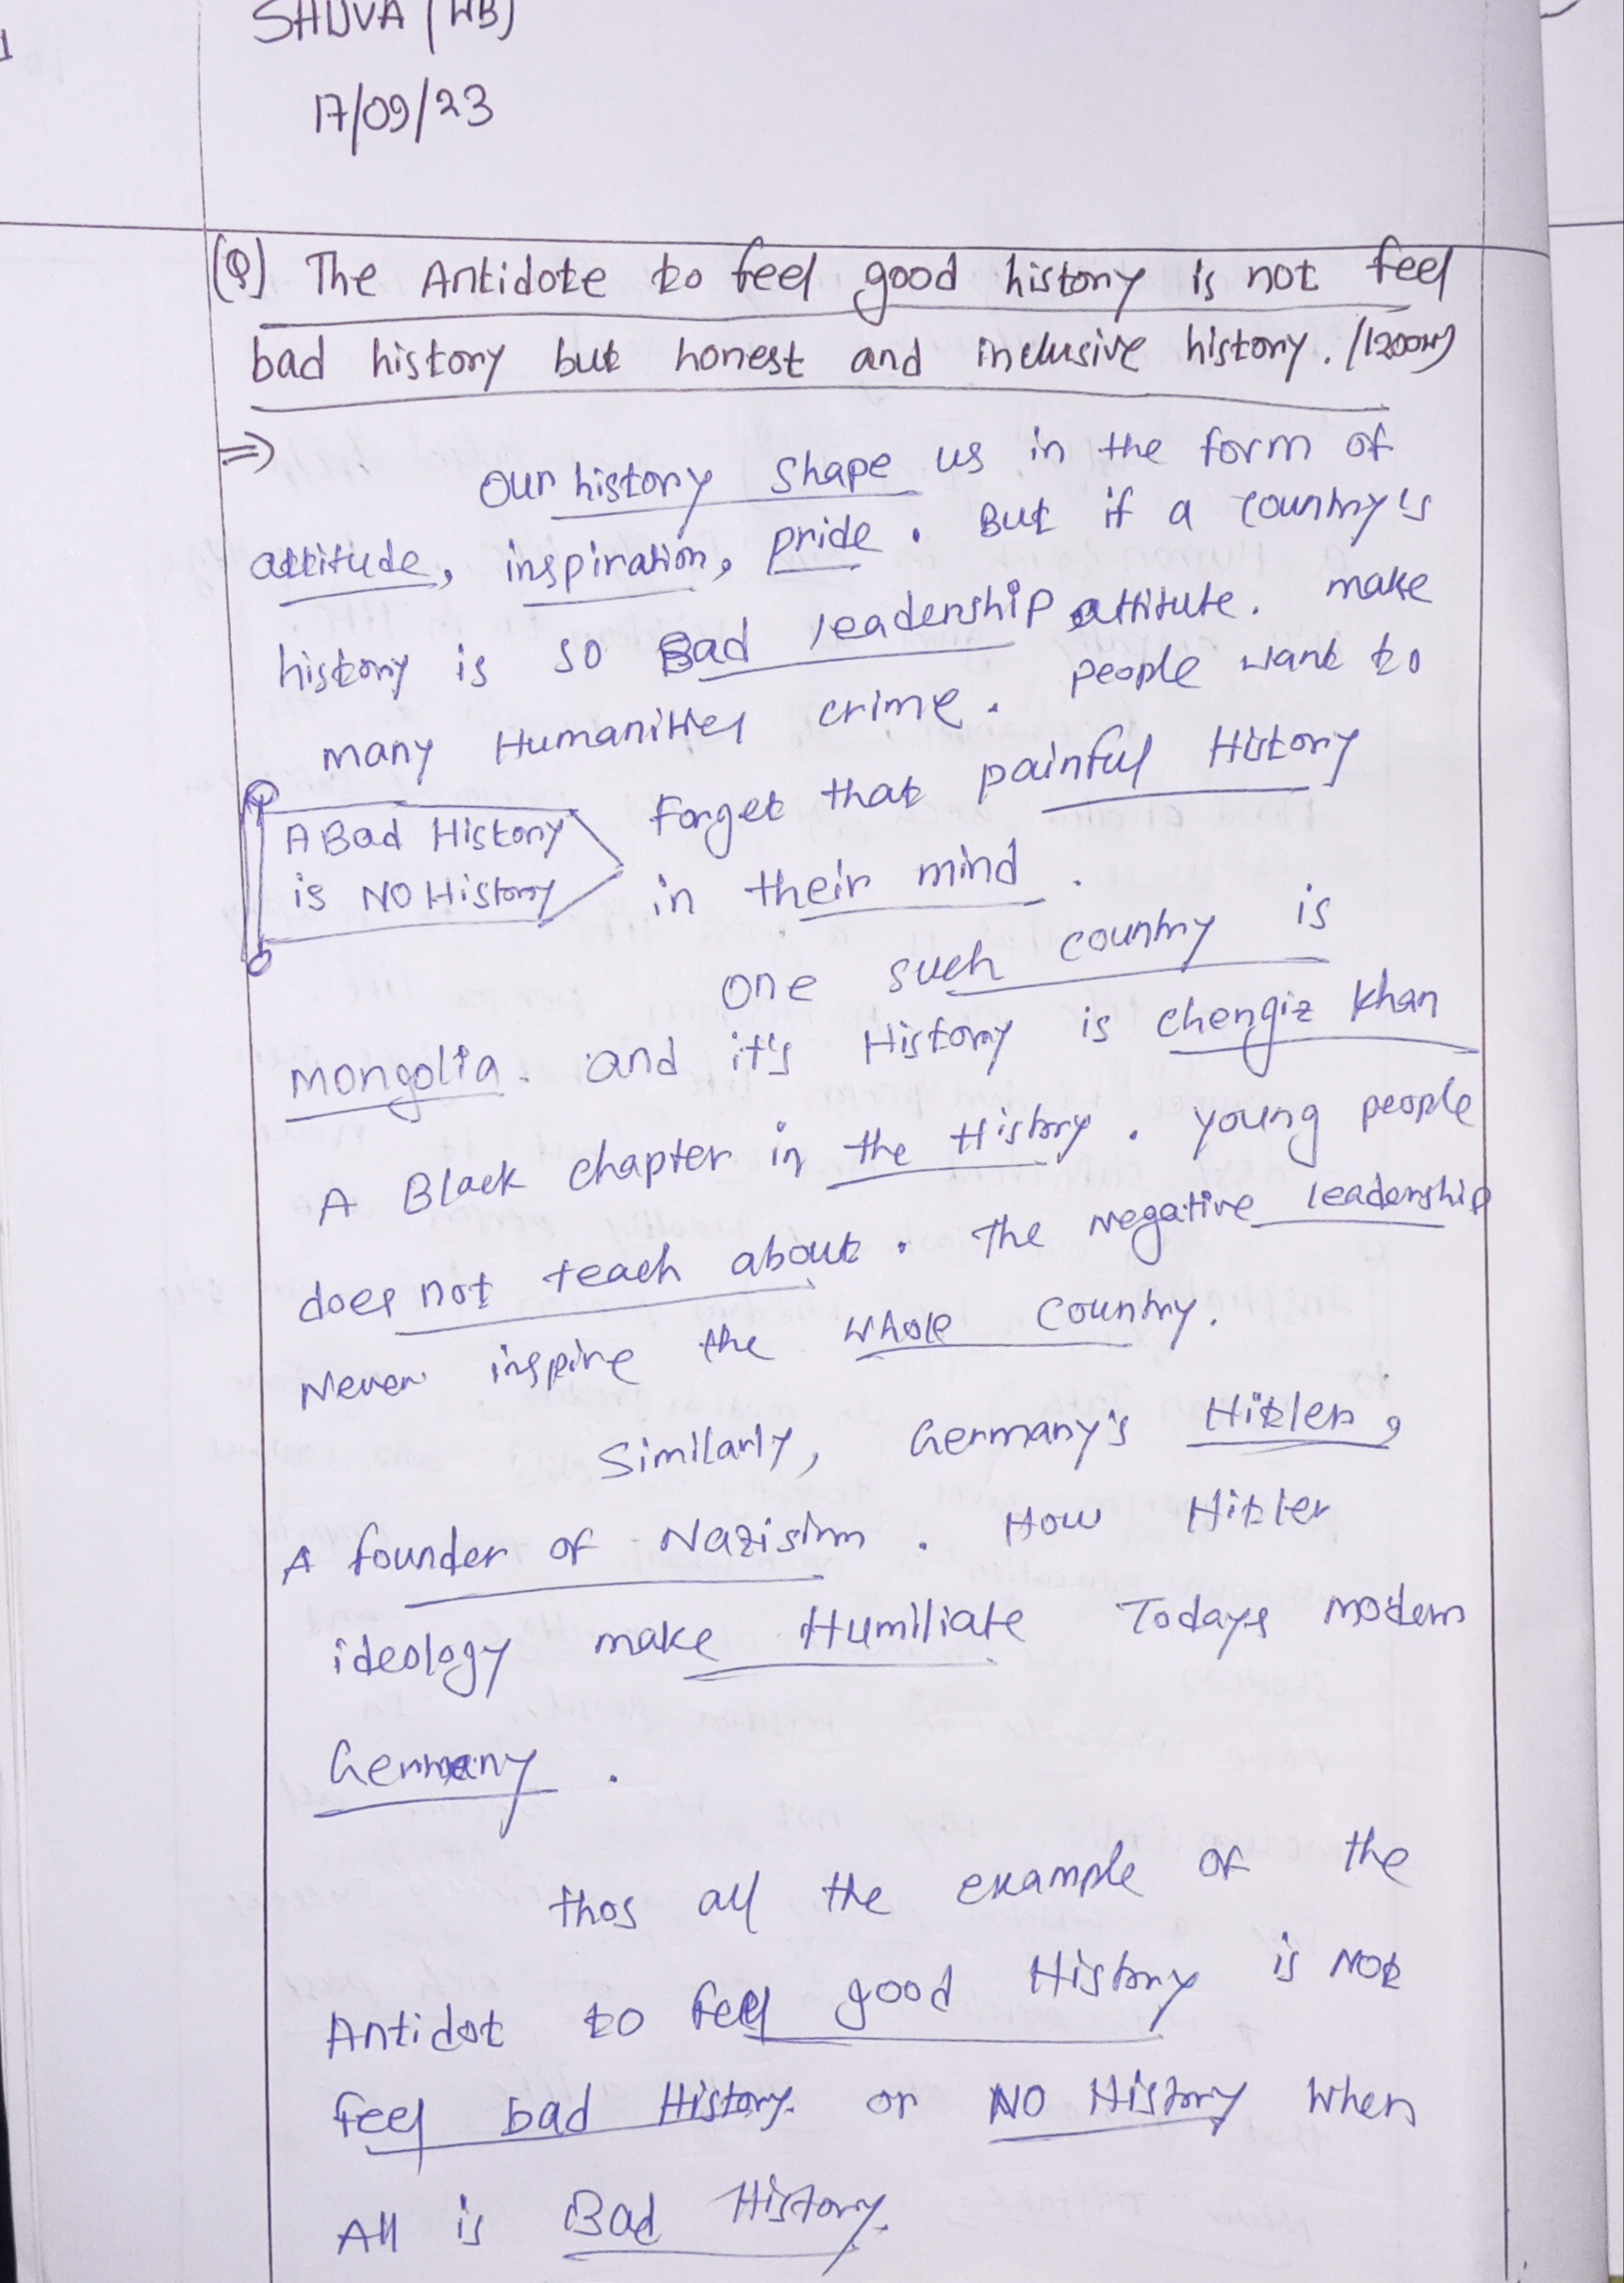 SHUVA (WB)
17/09/23
(Q) The Antidote to feel good history is not feel
bad history but honest and inclusive history. (1200W)
⇒
Our history shape us in the form of
attitude, inspiration, pride. But if a country's
history is so Bad leadership attitute. make
many Humanities crime. people want to
A Bad History
is NO History
forget that painful History
in their mind.
One such country is
Mongolia. and it's History is chengiz khan
A Black chapter in the History. young people
does not teach about. The Negative leadership
Never inspire the whole country.
Similarly, Germany's Hitler,
A founder of Nazisim. How Hitler
ideology make Humiliate Todays modern
Germany.
thos all the example of the
Antidot to feel good History is Not
feel bad History. or NO History when
All is Bad History.